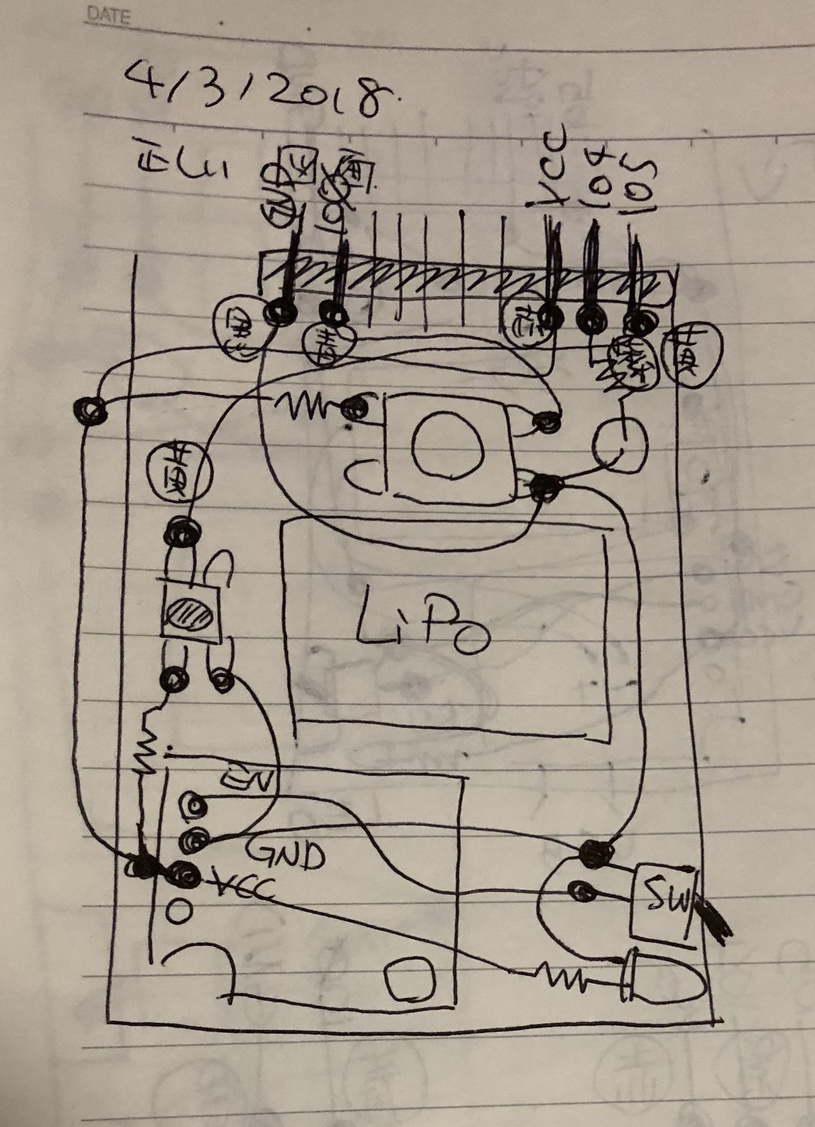 DATE
4/3/2018.
GND
VCC
IO4
IO5
黒
青
赤
黄
黄
LiPo
EN
GND
VCC
SW